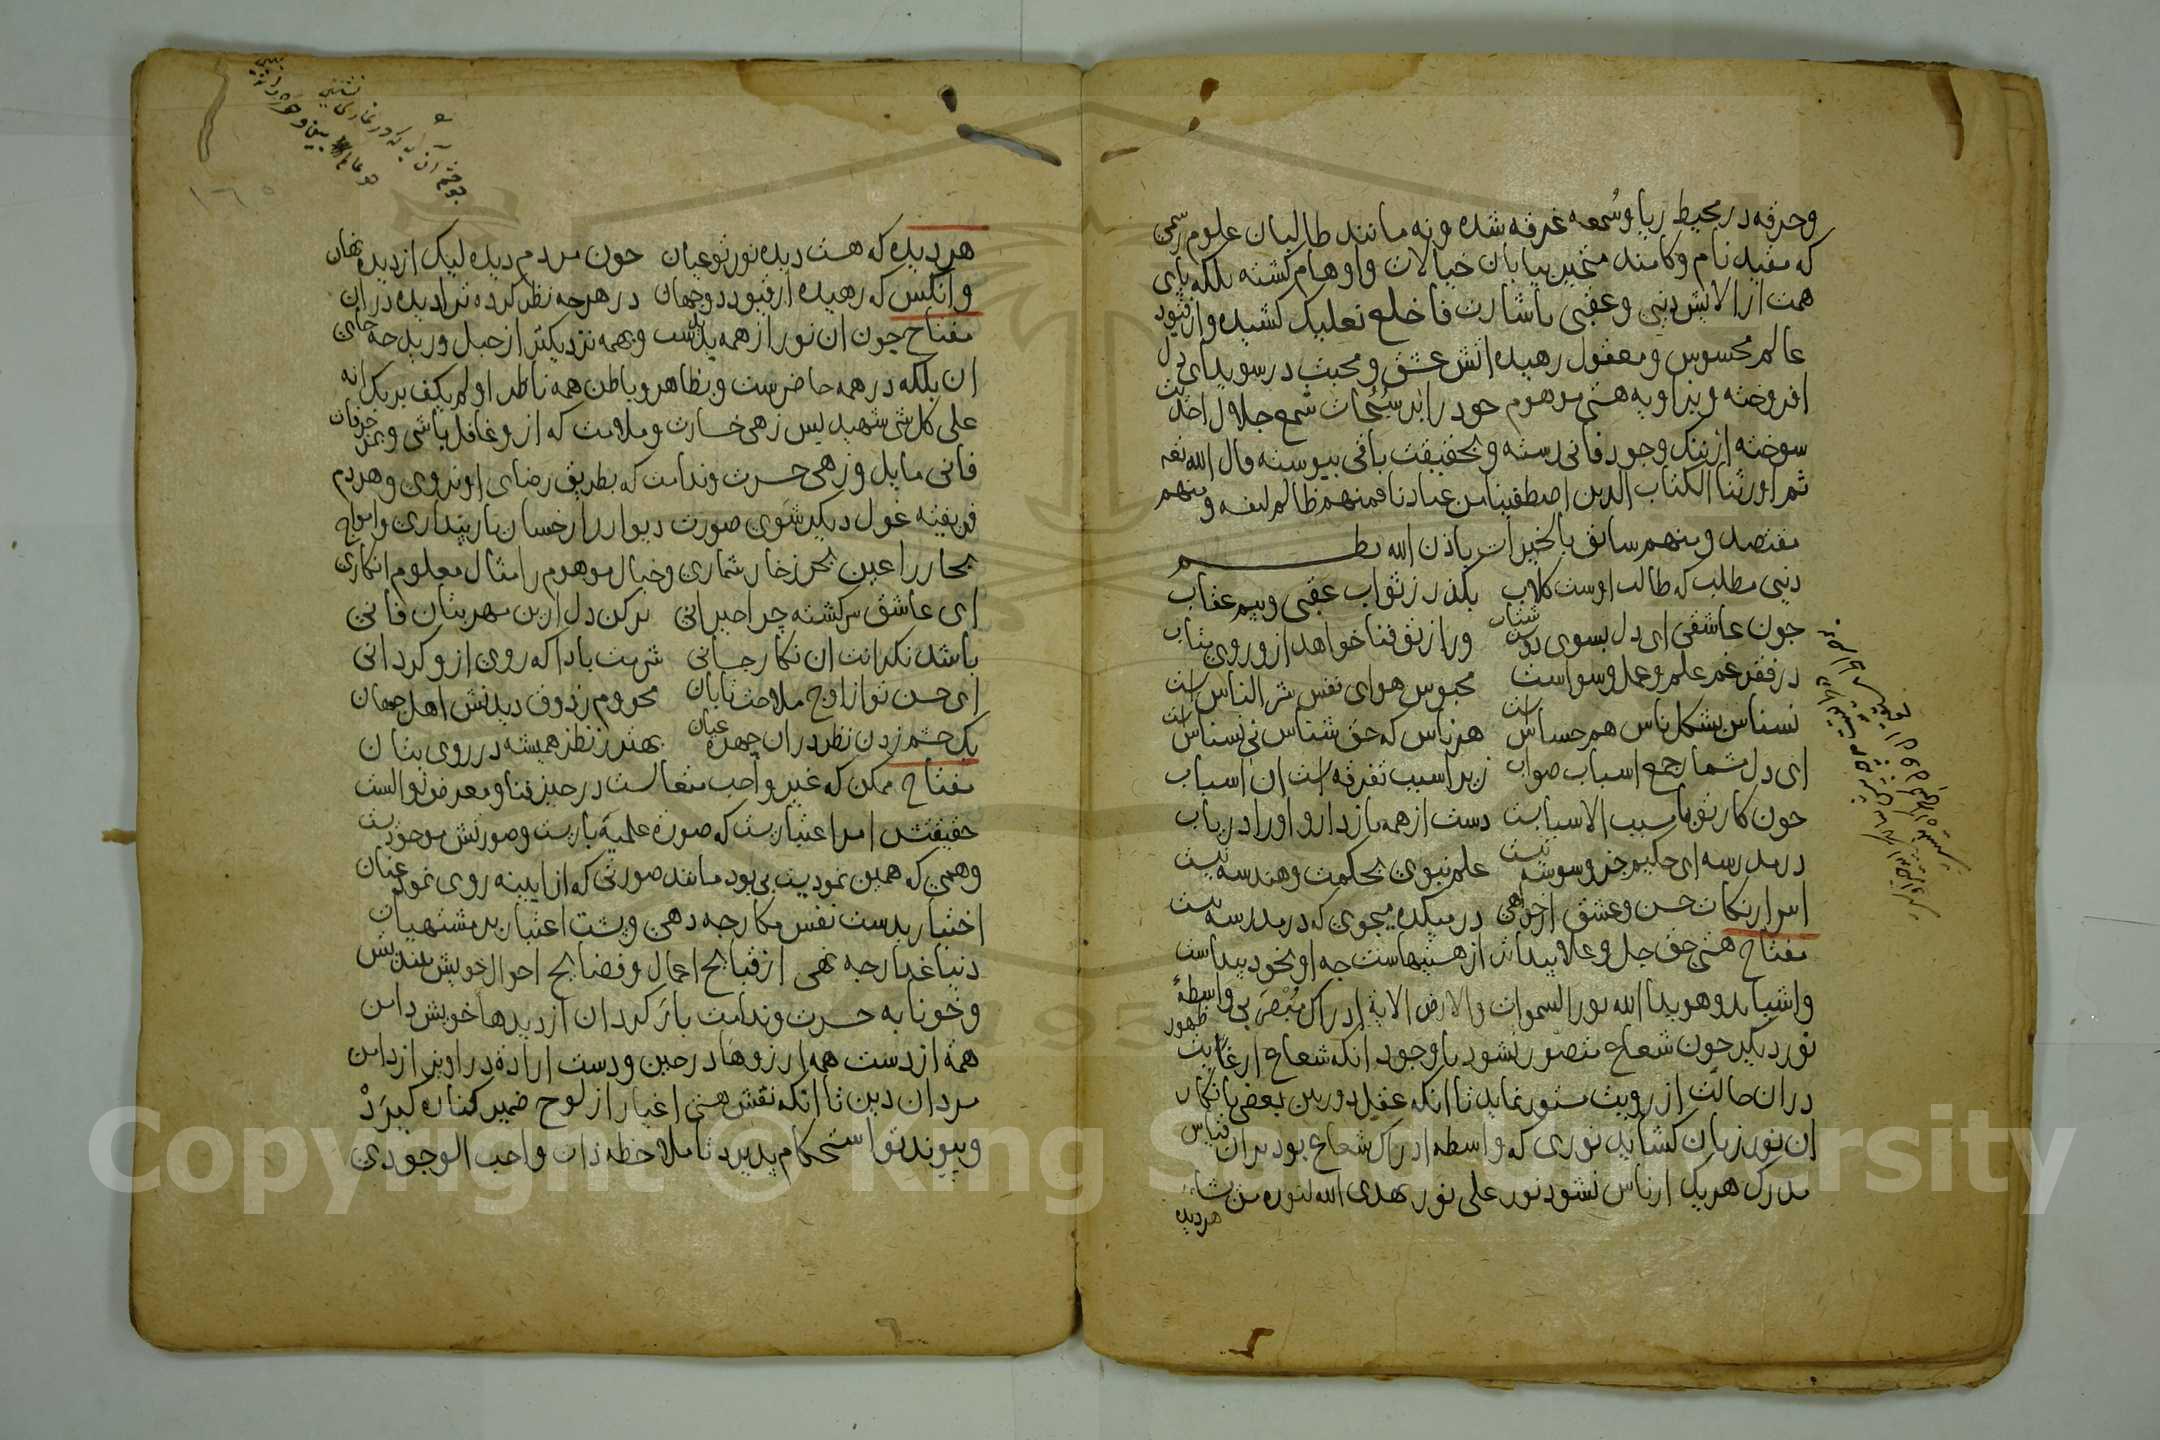 وحرقه در محیط ریا وسُمعه غرقه شده ونه مانند طالبان علوم رسمی
که مقید نام وکامند متحیر بیابان خیالات واوهام کشته بلکه پای
همت از الایش دنیی وعقبی باشارت فاخلع نعلیک کشیده واز قیود
عالم محسوس ومعقول رهیده اتش عشق ومحبت در سویدای دل
افروخته وبزاویه هستی موهوم خود را بر سُبُحات شمع جلال احدیت
سوخته از ننک وجود فانی رسته وبحقیقت باقی پیوسته قال الله تعه
ثم اورثنا الکتاب الذین اصطفینا من عبادنا فمنهم ظالم لنفسه ومنهم
مقتصد ومنهم سابق بالخیرات باذن الله نظم
دنیی مطلب که طالب اوست کلاب بکذر ز ثواب عقبی وبیم عقاب
چون عاشقی ای دل بسوی دوست شتاب ور از تو فنا خواهد ازو روی متاب
در فقر غم علم وعمل وسواست محبوس هوای نفس شر الناس است
نسناس بشکل ناس هم حساس است هر ناس که حق شناس نی نسناس است
ای دل مشمار جمع اسباب صواب زیرا سبب تفرقه است ان اسباب
چون کار تو با مسبب الاسباب است دست از همه باز دار و او را دریاب
در مدرسه ای حکیم جز وسوسه نیست علم نبوی بحکمت وهندسه نیست
اسرار نکات حسن وعشق ار خواهی در میکده میجوی که در مدرسه نیست
مفتاح هستی حق جل وعلا پیداتر از هستیهاست چه او بخود پیداست
واشیا بدو هویدا الله نور السموات والارض الایة ادراک مُبْصَر بی واسطهٔ ظهور
نور دیکر چون شعاع متصور نشود با وجود انکه شعاع از غایت
دران حالت از رویت مستور نماید تا انکه عقل دوربین بعضی بانکار
ان نور زبان کشاید نوری که واسطه ادراک شعاع بود بران قیاس
مدرک هر یک از ناس نشود نور علی نور یهدی الله لنوره من یشاء
هر دیده
هر دیده که هست دیده نور تو عیان چون مردم دیده لیک از دیده نهان
وانکس که رهیده از قیود دوجهان در هرچه نظر کرده ترا دیده دران
مفتاح چون ان نور از همه پیداست وبهمه نزدیکتر از حبل ورید چه جای
ان بلکه در همه حاضرست وبظاهر وباطن همه ناظر اولم یکف بربک انه
علی کل شی شهید پس زهی خسارت وملامت که ازو غافل باشی وبمزخرفان
فانی مایل وزهی حسرت وندامت که بطریق رضای او نروی وهر دم
فریفته غول دیکر شوی صورت دیوار را رخسان یار پنداری وامواج
بحار را عین بحر زخار شماری وخیال موهوم را مثال معلوم انکاری
ای عاشق سرکشته چرا حیرانی برکن دل ازین مهر بتان فانی
باشد نکرانت ان نکار جانی شرمت بادا که روی ازو کردانی
ای حسن تو از اوج ملاحت تابان محروم ز ذوق دیدنش اهل جهان
یک چشم زدن نظر دران چهره عیان بهتر ز نظر همیشه در روی بتان
مفتاح ممکن که غیر واجب متعالست در حیز فنا ومعرض زوالست
حقیقتش امر اعتباریست که صورة علمیه باریست وصورتش موجودیست
وهمی که همین نمودیست بی بود مانند صورتی که از ایینه روی نمود عنان
اختیار بدست نفس مکار چه دهی وپشت اعتبار بر مشتهیات
دنیا غدار چه نهی از قبایح اعمال وفضایح احوال خویش بیندیش
وخونابه حسرت وندامت باز کردان از دیدها خویش دامن
همة از دست همه ارزوها درچین ودست ارادة در اویز از دامن
مردان دین تا انکه نقش هستی اغیار از لوح ضمیر کناره کیرَدْ
وپیوند تو استحکام پذیرد تا ملاحظه ذات واجب الوجودی
١٦٥
Copyright © King Saud University